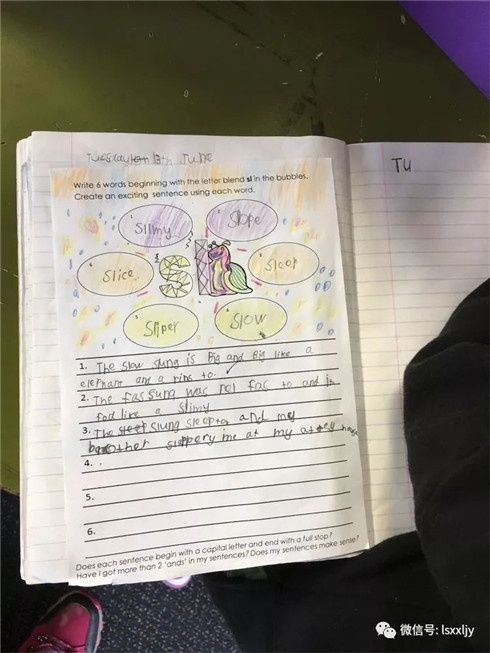 Tuesday 13th June
TU
Write 6 words beginning with the letter blend sl in the bubbles.
Create an exciting sentence using each word.
Slimy
Slope
Slice
sl
Sleep
Sliper
Slow
1. The slow slung is Big and Big like a
elephant and a rino to.
2. The fas sung was not fas to and it
fold like a slimy
3. The slung sleep to and my
brother slappery me at my
4.
5.
6.
Does each sentence begin with a capital letter and end with a full stop?
Have I got more than 2 'ands' in my sentences? Does my sentences make sense?
微信号: lsxxljy